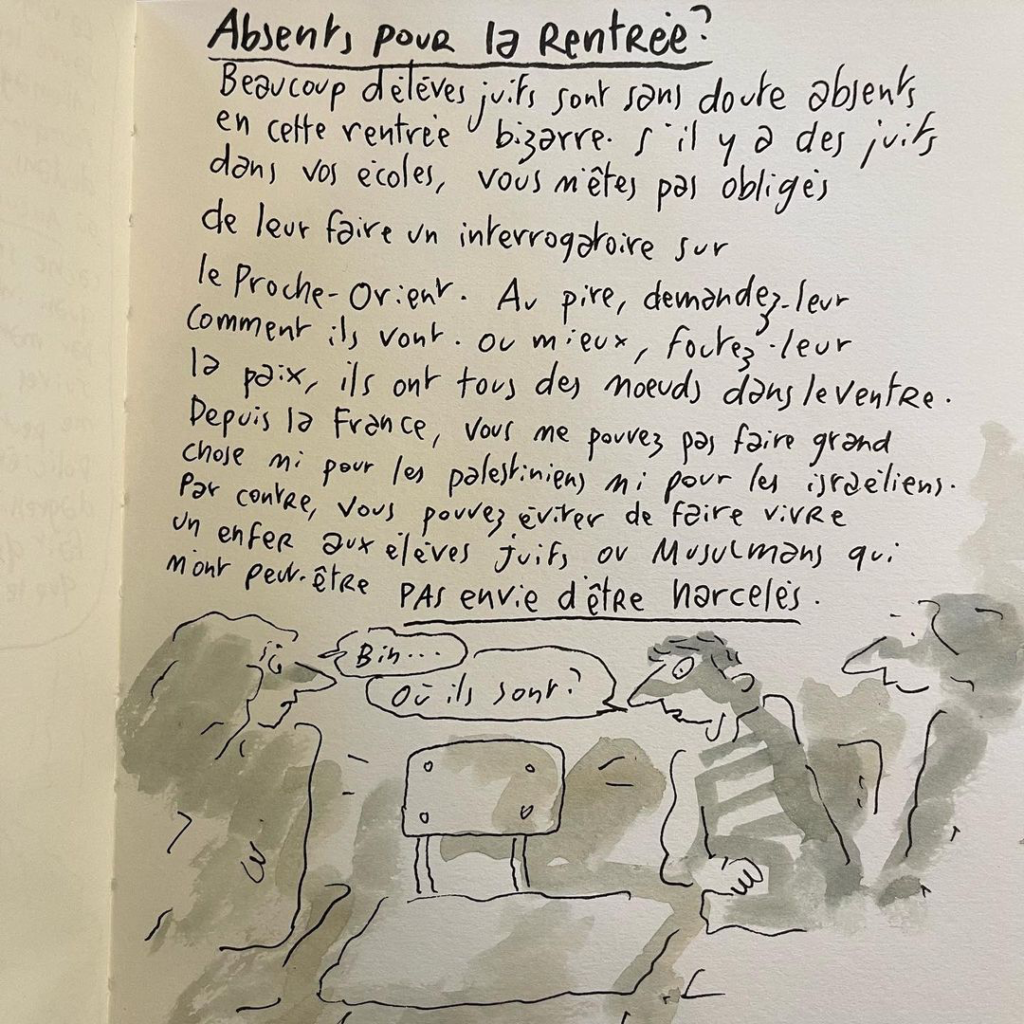 Absents pour la rentrée?
Beaucoup d'élèves juifs sont sans doute absents
en cette rentrée bizarre. s'il y a des juifs
dans vos écoles, vous n'êtes pas obligés
de leur faire un interrogatoire sur
le Proche-Orient. Au pire, demandez-leur
comment ils vont. ou mieux, foutez-leur
la paix, ils ont tous des noeuds dans le ventre.
Depuis la France, vous ne pouvez pas faire grand
chose ni pour les palestiniens ni pour les israéliens.
Par contre, vous pouvez éviter de faire vivre
un enfer aux élèves juifs ou Musulmans qui
n'ont peut-être PAS envie d'être harcelés.
Bin...
Où ils sont?